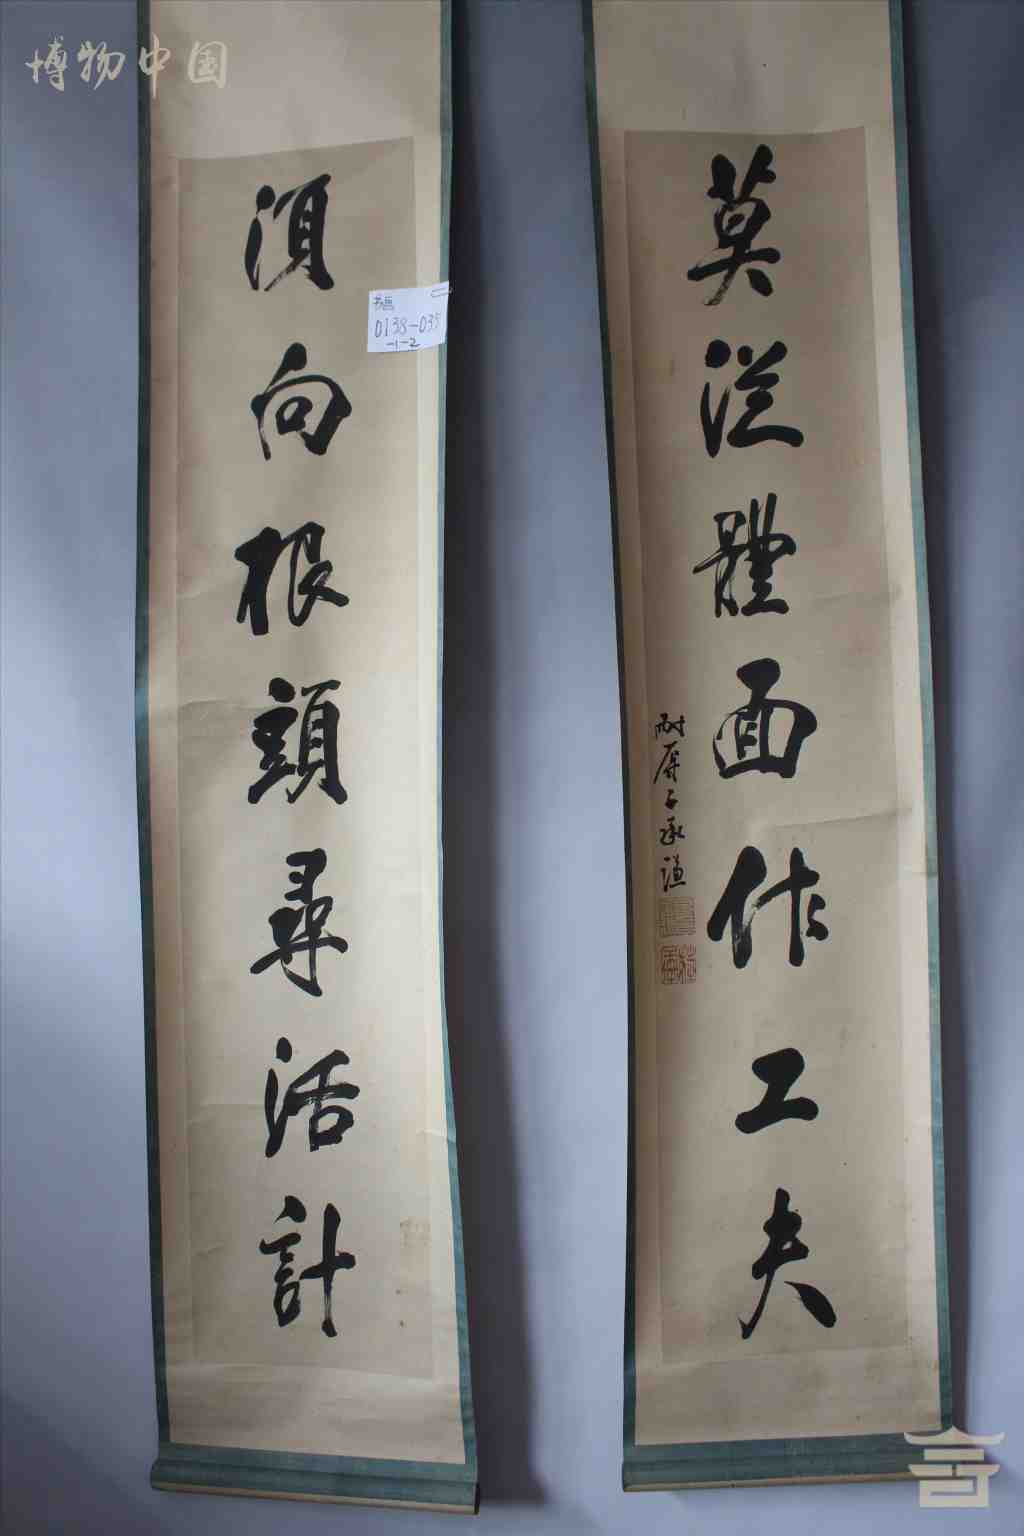 博物中国
須向根頭尋活計
书画
0138-035
-1-2
莫從體面作工夫
耐辱子承謙